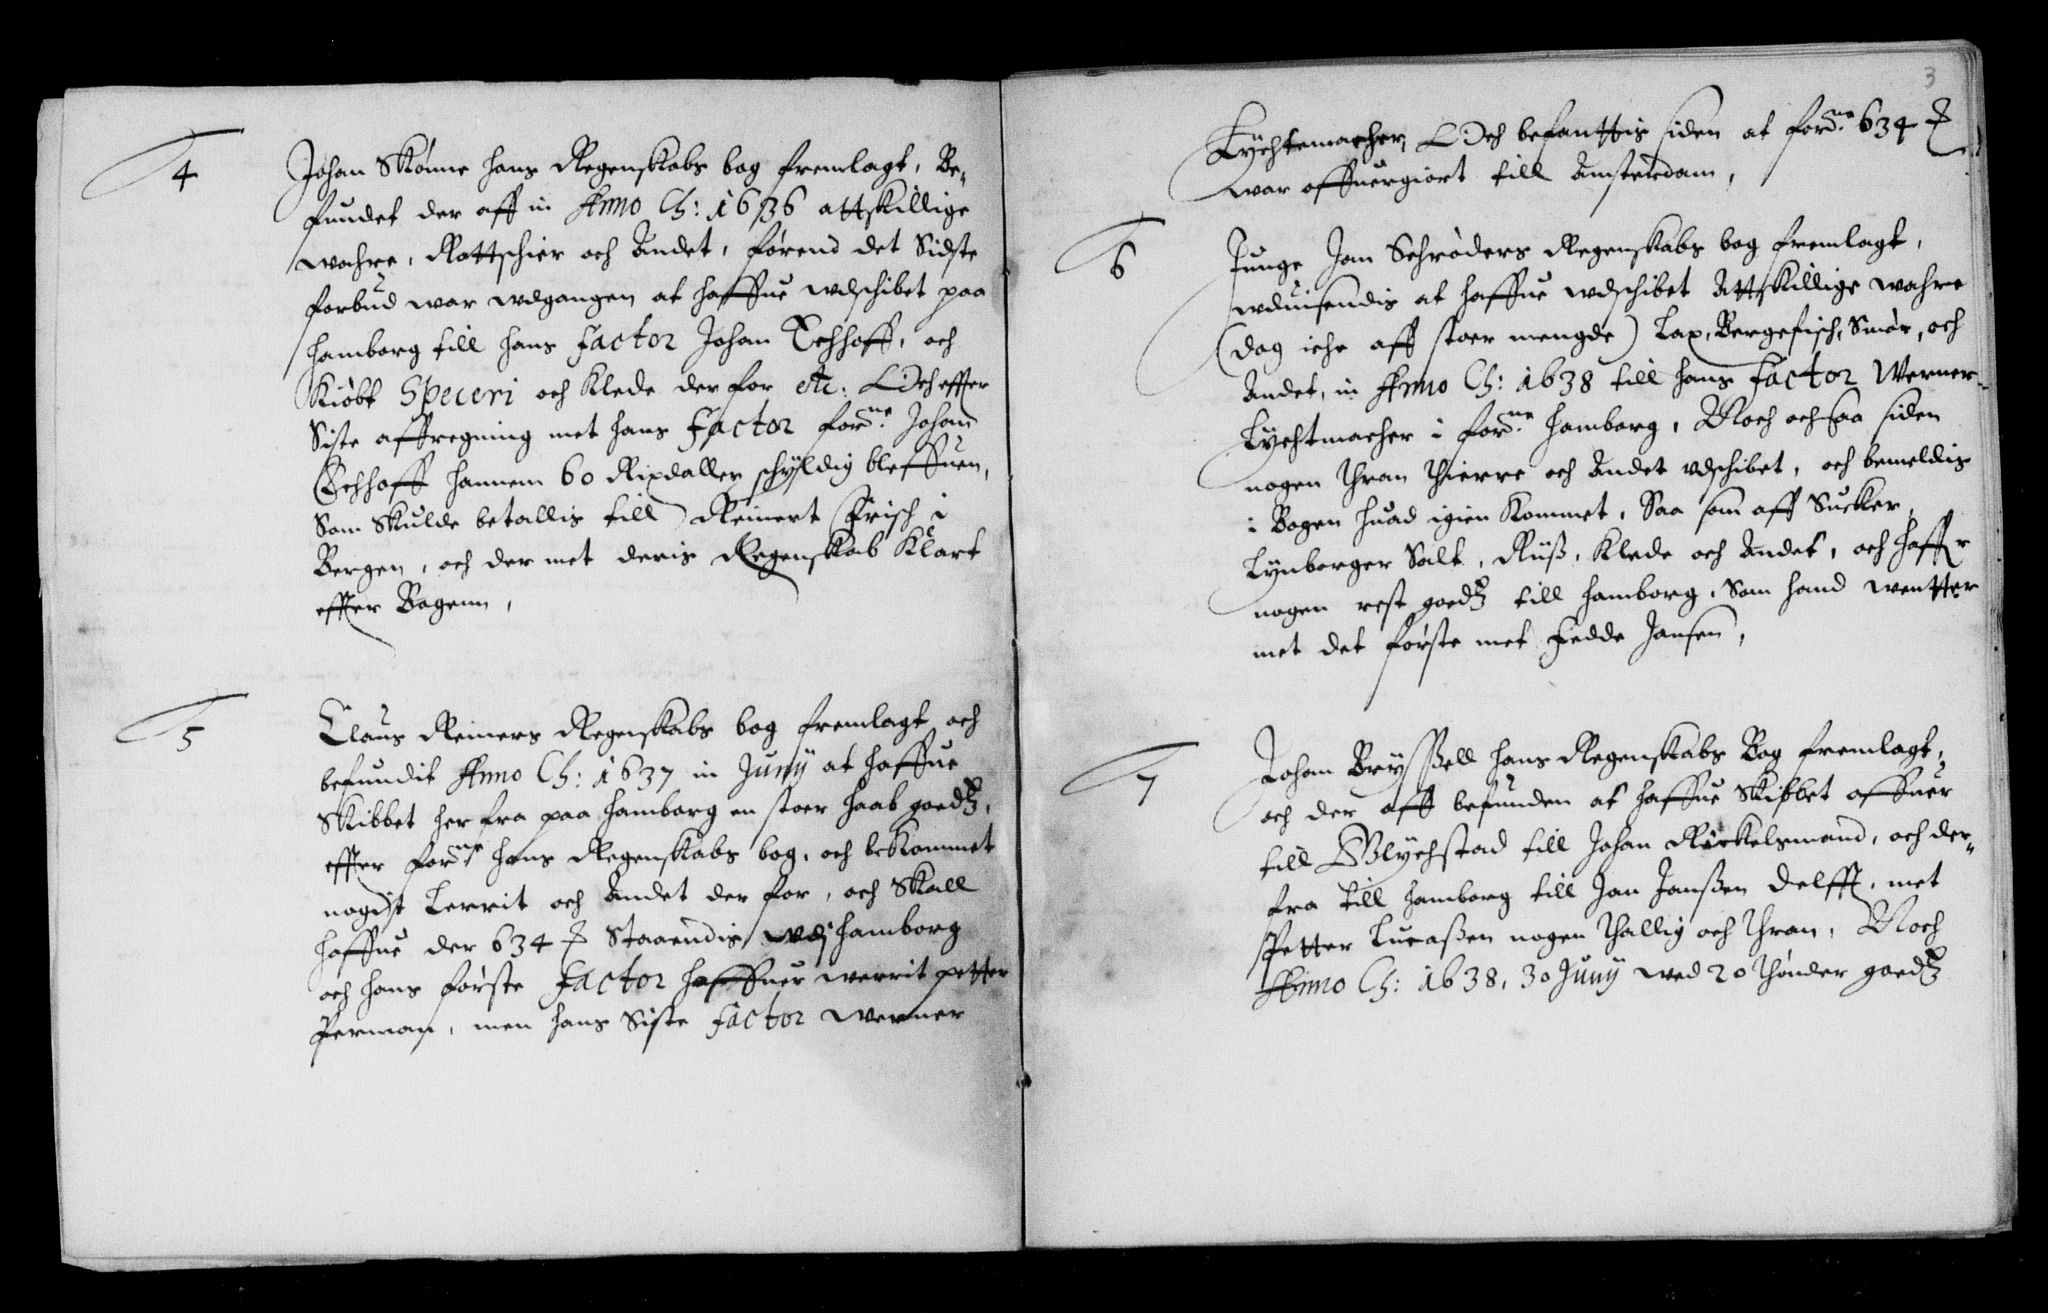 4
Johan Skönne hans Regenskabs bog fremlagt, Be-
fundet der aff in Anno Ch: 1636 attskillige
wahre, Rottschier och Andet, förend det Sidste
forbud war wdgangen at haffue wdschibet paa
Hamborg till hans Factor Johan Echhoff, och
Kiöbt Speceri och Klede der for etc: Och effter
Siste affregning met hans Factor fordne Johan
Echhoff hannem 60 Rixdaller schyldig bleffuen,
Som Skulde betallis till Reinert Frisch i
Bergen, och der met deris Regenskab Klart
effter Bogenn,
5
Claus Reiners Regenskabs bog fremlagt och
befundit Anno Ch: 1637 in Junij at haffue
Skibbet her fra paa Hamborg en stoer haab goedtz,
effter fordne hans Regenskabs bog, och bekommet
nogit Lerrit och Andet der for, och Skall
haffue der 634 Staaendis wdj Hamborg
och hans förste Factor haffuer werrit petter
Perman, men hans Siste Factor werner
3
Lychtemacher, Och befanttis siden at fordne 634
war offuergiort till Amsterdam,
6
Junge Jan Schröders Regenskabs bog fremlagt,
wduisendis at haffue wdschibet Attskillige wahre
(dog iche aff stoer mengde) Lax, Bergefisch, Smör, och
Andet, in Anno Ch: 1638 till hans Factor Werner
Lychtmacher i fordne Hamborg, Noch ochsaa siden
nogen Thran Thierre och Andet vdschibet, och bemeldis
i Bogen huad igien Kommet, Saa som aff Sucker,
Lynborger Salt, Rüß, Klede och Andet, och haffr
nogen rest goedtz till Hamborg, Som hand wentter
met det förste met Fedde Jansen,
7
Johan Bryssell hans Regenskabs Bog fremlagt,
och der aff befunden at haffue Skibbet offuer
till Glychstad till Johan Röckelsmand, och der-
fra till Hamborg till Jan Janßen Delfft, met
Petter Lucaßen nogen Thallig och Thran, Noch
Anno Ch: 1638, 30 Junij wed 20 Thönder goedtz